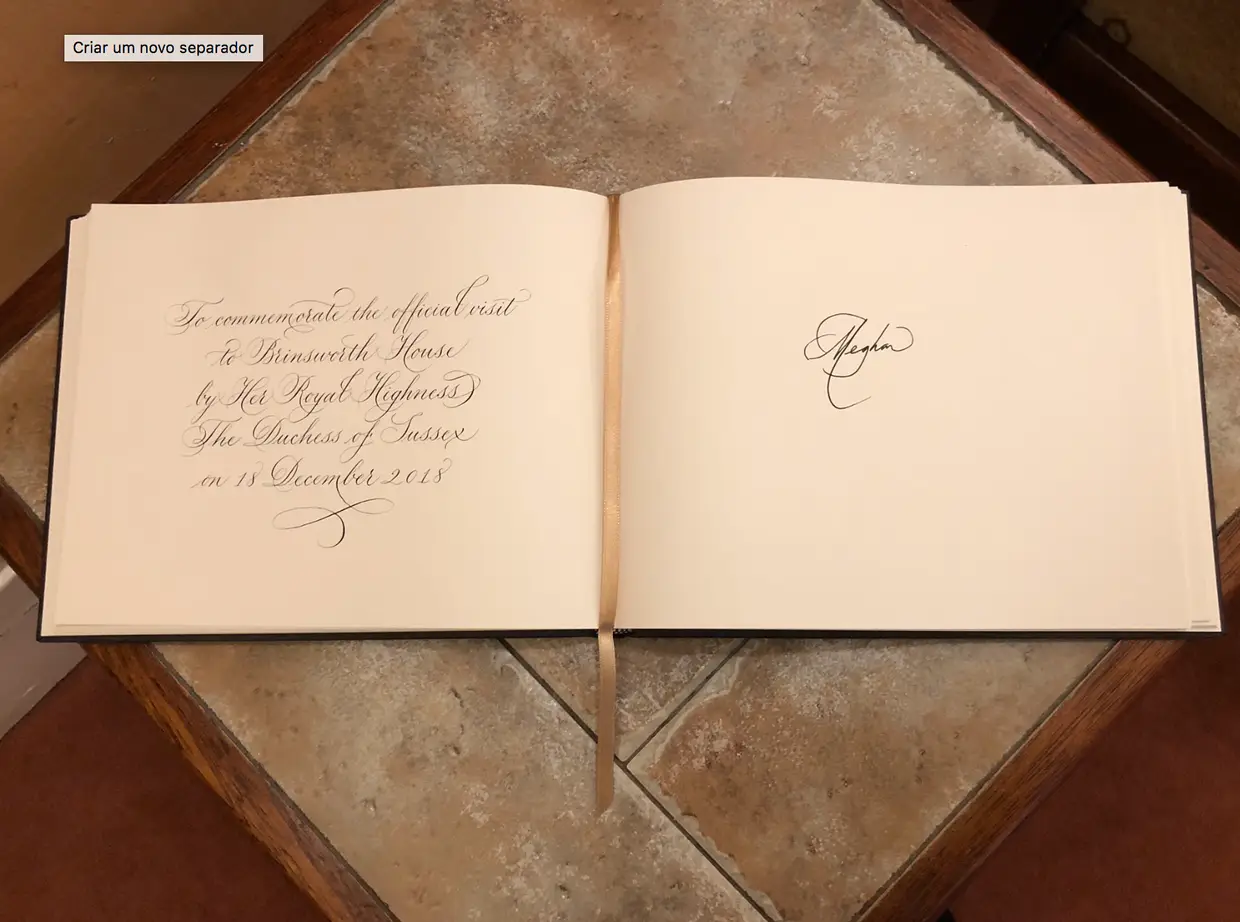 Criar um novo separador
To commemorate the official visit
to Brinsworth House
by Her Royal Highness
The Duchess of Sussex
on 18 December 2018
Meghan